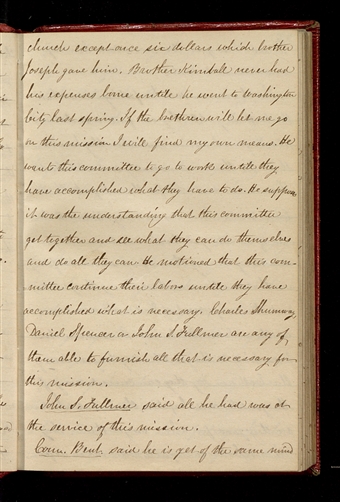 church except once six dollars which brother
Joseph gave him. Brother Kimball never had
his expenses borne untile he went to Washington
City last spring. If the brethren will let me go
on this mission I will find my own means. He
wants this committee to go to work untile they
have accomplished what they have to do. He supposes
it was the understanding that this committee
get together and see what they can do themselves
and do all they can. He motioned that this com-
mittee continue their labors untile they have
accomplished what is necessary. Charles Shumway
Daniel Spencer or John S. Fullmer are any of
them able to furnish all that is necessary for
this mission.
John S. Fullmer said all he had was at
the service of this mission.
Coun. Bent said he is yet of the same mind